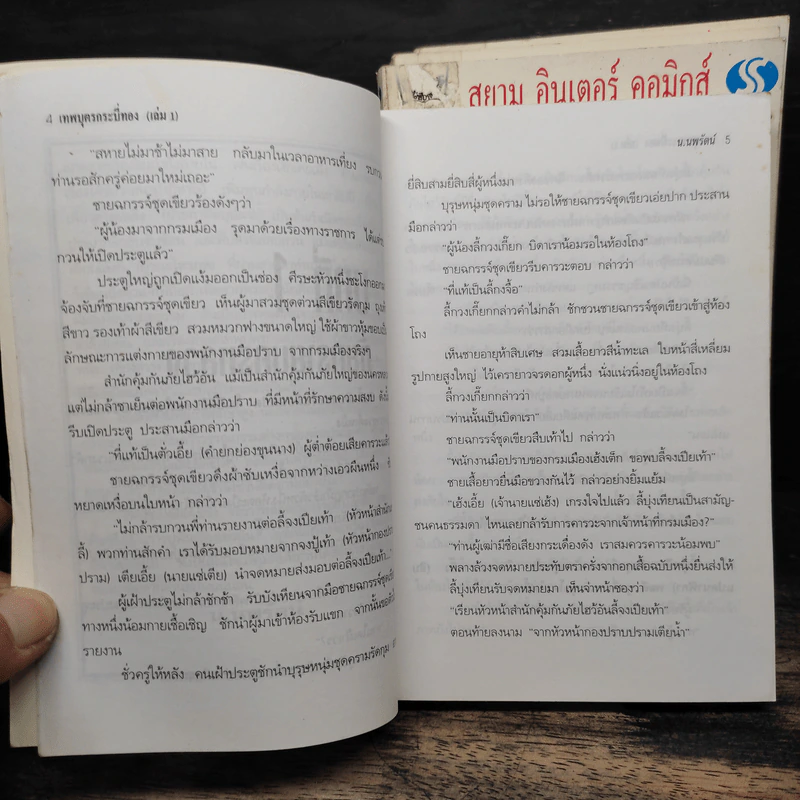 สยาม อินเตอร์ คอมิกส์
4 เทพบุตรกระบี่ทอง (เล่ม 1)
"สหายไม่มาช้าไม่มาสาย กลับมาในเวลาอาหารเที่ยง รบกวน
ท่านรอสักครู่ค่อยมาใหม่เถอะ"
ชายฉกรรจ์ชุดเขียวร้องดังๆว่า
"ผู้น้องมาจากกรมเมือง รุดมาด้วยเรื่องทางราชการ ได้แต่
กวนให้เปิดประตูแล้ว"
ประตูใหญ่ถูกเปิดแง้มออกเป็นช่อง ศีรษะหัวหนึ่งชะโงกออกมา
จ้องจับที่ชายฉกรรจ์ชุดเขียว เห็นผู้มาสวมชุดต่วนสีเขียวรัดกุม ถุง
สีขาว รองเท้าผ้าสีเขียว สวมหมวกฟางขนาดใหญ่ ใช้ผ้าขาวหุ้มขอบ
ลักษณะการแต่งกายของพนักงานมือปราบ จากกรมเมืองจริงๆ
สำนักคุ้มกันภัยไฮว้อัน แม้เป็นสำนักคุ้มกันภัยใหญ่ของนคร
แต่ไม่กล้าชาเย็นต่อพนักงานมือปราบ ที่มีหน้าที่รักษาความสงบ ดังนั้น
รีบเปิดประตู ประสานมือกล่าวว่า
"ที่แท้เป็นตั่วเอี้ย (คำยกย่องขุนนาง) ผู้ต่ำต้อยเสียคารวะแล้ว
ชายฉกรรจ์ชุดเขียวดึงผ้าซับเหงื่อจากหว่างเอวผืนหนึ่ง
หยาดเหงื่อบนใบหน้า กล่าวว่า
"ไม่กล้ารบกวนพี่ท่านรายงานต่อลี้จงเปียเท้า (หัวหน้าสำนัก
ลี้) พวกท่านสักคำ เราได้รับมอบหมายจากจงปู้เท้า (หัวหน้ากองปราบ
ปราม) เตียเอี้ย (นายแซ่เตีย) นำจดหมายส่งมอบต่อลี้จงเปียเท้า..."
ผู้เฝ้าประตูไม่กล้าชักช้า รับบังเหียนจากมือชายฉกรรจ์ชุดเขียว
ทางหนึ่งน้อมกายเชื้อเชิญ ชักนำผู้มาเข้าห้องรับแขก จากนั้นขอตัว
รายงาน
ชั่วครู่ให้หลัง คนเฝ้าประตูชักนำบุรุษหนุ่มชุดครามรัดกุม
น.นพรัตน์ 5
ยี่สิบสามยี่สิบสี่ผู้หนึ่งมา
บุรุษหนุ่มชุดคราม ไม่รอให้ชายฉกรรจ์ชุดเขียวเอ่ยปาก ประสาน
มือกล่าวว่า
"ผู้น้องลี้กวงเกี๊ยก บิดาเราน้อมรอในห้องโถง"
ชายฉกรรจ์ชุดเขียวรีบคารวะตอบ กล่าวว่า
"ที่แท้เป็นลี้กงจื้อ"
ลี้กวงเกี๊ยกกล่าวคำไม่กล้า ชักชวนชายฉกรรจ์ชุดเขียวเข้าสู่ห้อง
โถง
เห็นชายอายุห้าสิบเศษ สวมเสื้อยาวสีน้ำทะเล ใบหน้าสี่เหลี่ยม
รูปกายสูงใหญ่ ไว้เครายาวจรดอกผู้หนึ่ง นั่งแน่วนิ่งอยู่ในห้องโถง
ลี้กวงเกี๊ยกกล่าวว่า
"ท่านนั้นเป็นบิดาเรา"
ชายฉกรรจ์ชุดเขียวสืบเท้าไป กล่าวว่า
"พนักงานมือปราบของกรมเมืองเฮ้งเต็ก ขอพบลี้จงเปียเท้า"
ชายเสื้อยาวยื่นมือขวางกันไว้ กล่าวอย่างยิ้มแย้ม
"เฮ้งเอี้ย (เจ้านายแซ่เฮ้ง) เกรงใจไปแล้ว ลี้บุ่งเทียนเป็นสามัญ-
ชนคนธรรมดา ไหนเลยกล้ารับการคารวะจากเจ้าหน้าที่กรมเมือง?"
"ท่านผู้เฒ่ามีชื่อเสียงกระเดื่องดัง เราสมควรคารวะน้อมพบ"
พลางล้วงจดหมายประทับตราครั่งจากอกเสื้อฉบับหนึ่งยื่นส่งให้
ลี้บุ่งเทียนรับจดหมายมา เห็นจ่าหน้าซองว่า
"เรียนหัวหน้าสำนักคุ้มกันภัยไฮว้อันลี้จงเปียเท้า"
ตอนท้ายลงนาม "จากหัวหน้ากองปราบปรามเตียน้ำ"